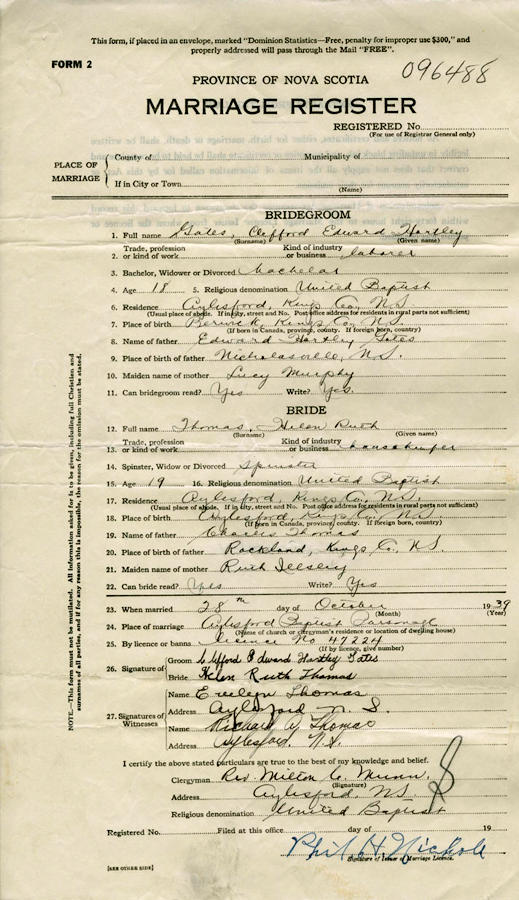 This form, if placed in an envelope, marked "Dominion Statistics—Free, penalty for improper use $300," and
properly addressed will pass through the Mail "FREE".
FORM 2
096488
PROVINCE OF NOVA SCOTIA
MARRIAGE REGISTER
REGISTERED No.
(For use of Registrar General only)
PLACE OF MARRIAGE
County of
Municipality of
If in City or Town
(Name)
BRIDEGROOM
1. Full name Gates, Clifford Edward Hartley
(Surname) (Given name)
Trade, profession Kind of industry
2. or kind of work or business laborer
3. Bachelor, Widower or Divorced Bachelor
4. Age 18 5. Religious denomination United Baptist
6. Residence Aylesford, Kings Co., N.S.
(Usual place of abode. If in city, street and No. Post office address for residents in rural parts not sufficient)
7. Place of birth Berwick, Kings Co., N.S.
(If born in Canada, province, county. If foreign born, country)
8. Name of father Edward Hartley Gates
9. Place of birth of father Nicholasville, N.S.
10. Maiden name of mother Lucy Murphy
11. Can bridegroom read? Yes Write? Yes.
BRIDE
12. Full name Thomas, Helen Ruth
(Surname) (Given name)
Trade, profession Kind of industry
13. or kind of work or business housekeeper
14. Spinster, Widow or Divorced Spinster
15. Age 19 16. Religious denomination United Baptist
17. Residence Aylesford, Kings Co., N.S.
(Usual place of abode. If in city, street and No. Post office address for residents in rural parts not sufficient)
18. Place of birth Aylesford, Kings Co., N.S.
(If born in Canada, province, county. If foreign born, country)
19. Name of father Charles Thomas
20. Place of birth of father Rockland, Kings Co., N.S.
21. Maiden name of mother Ruth Illsley
22. Can bride read? Yes Write? Yes
23. When married 28th day of October 1939
(Month) (Year)
24. Place of marriage Aylesford Baptist Parsonage
(Name of church or clergyman's residence or location of dwelling house)
25. By licence or banns licence No 47224
(If by licence, give number)
26. Signature of
Groom Clifford Edward Hartley Gates
Bride Helen Ruth Thomas
27. Signatures of Witnesses
Name Evelyn Thomas
Address Aylesford N.S.
Name Richard A Thomas
Address Aylesford. N.S.
I certify the above stated particulars are true to the best of my knowledge and belief.
Clergyman Rev. Milton C. Munn.
(Signature)
Address Aylesford, N.S.
Religious denomination United Baptist
Registered No. Filed at this office day of 19
Phil H Nichols
Signature of Issuer of Marriage Licence.
[SEE OTHER SIDE]
NOTE.—This form must not be mutilated. All information asked for is to be given, including full Christian and
surnames of all parties, and if for any reason this is impossible, the reason for the omission must be stated.